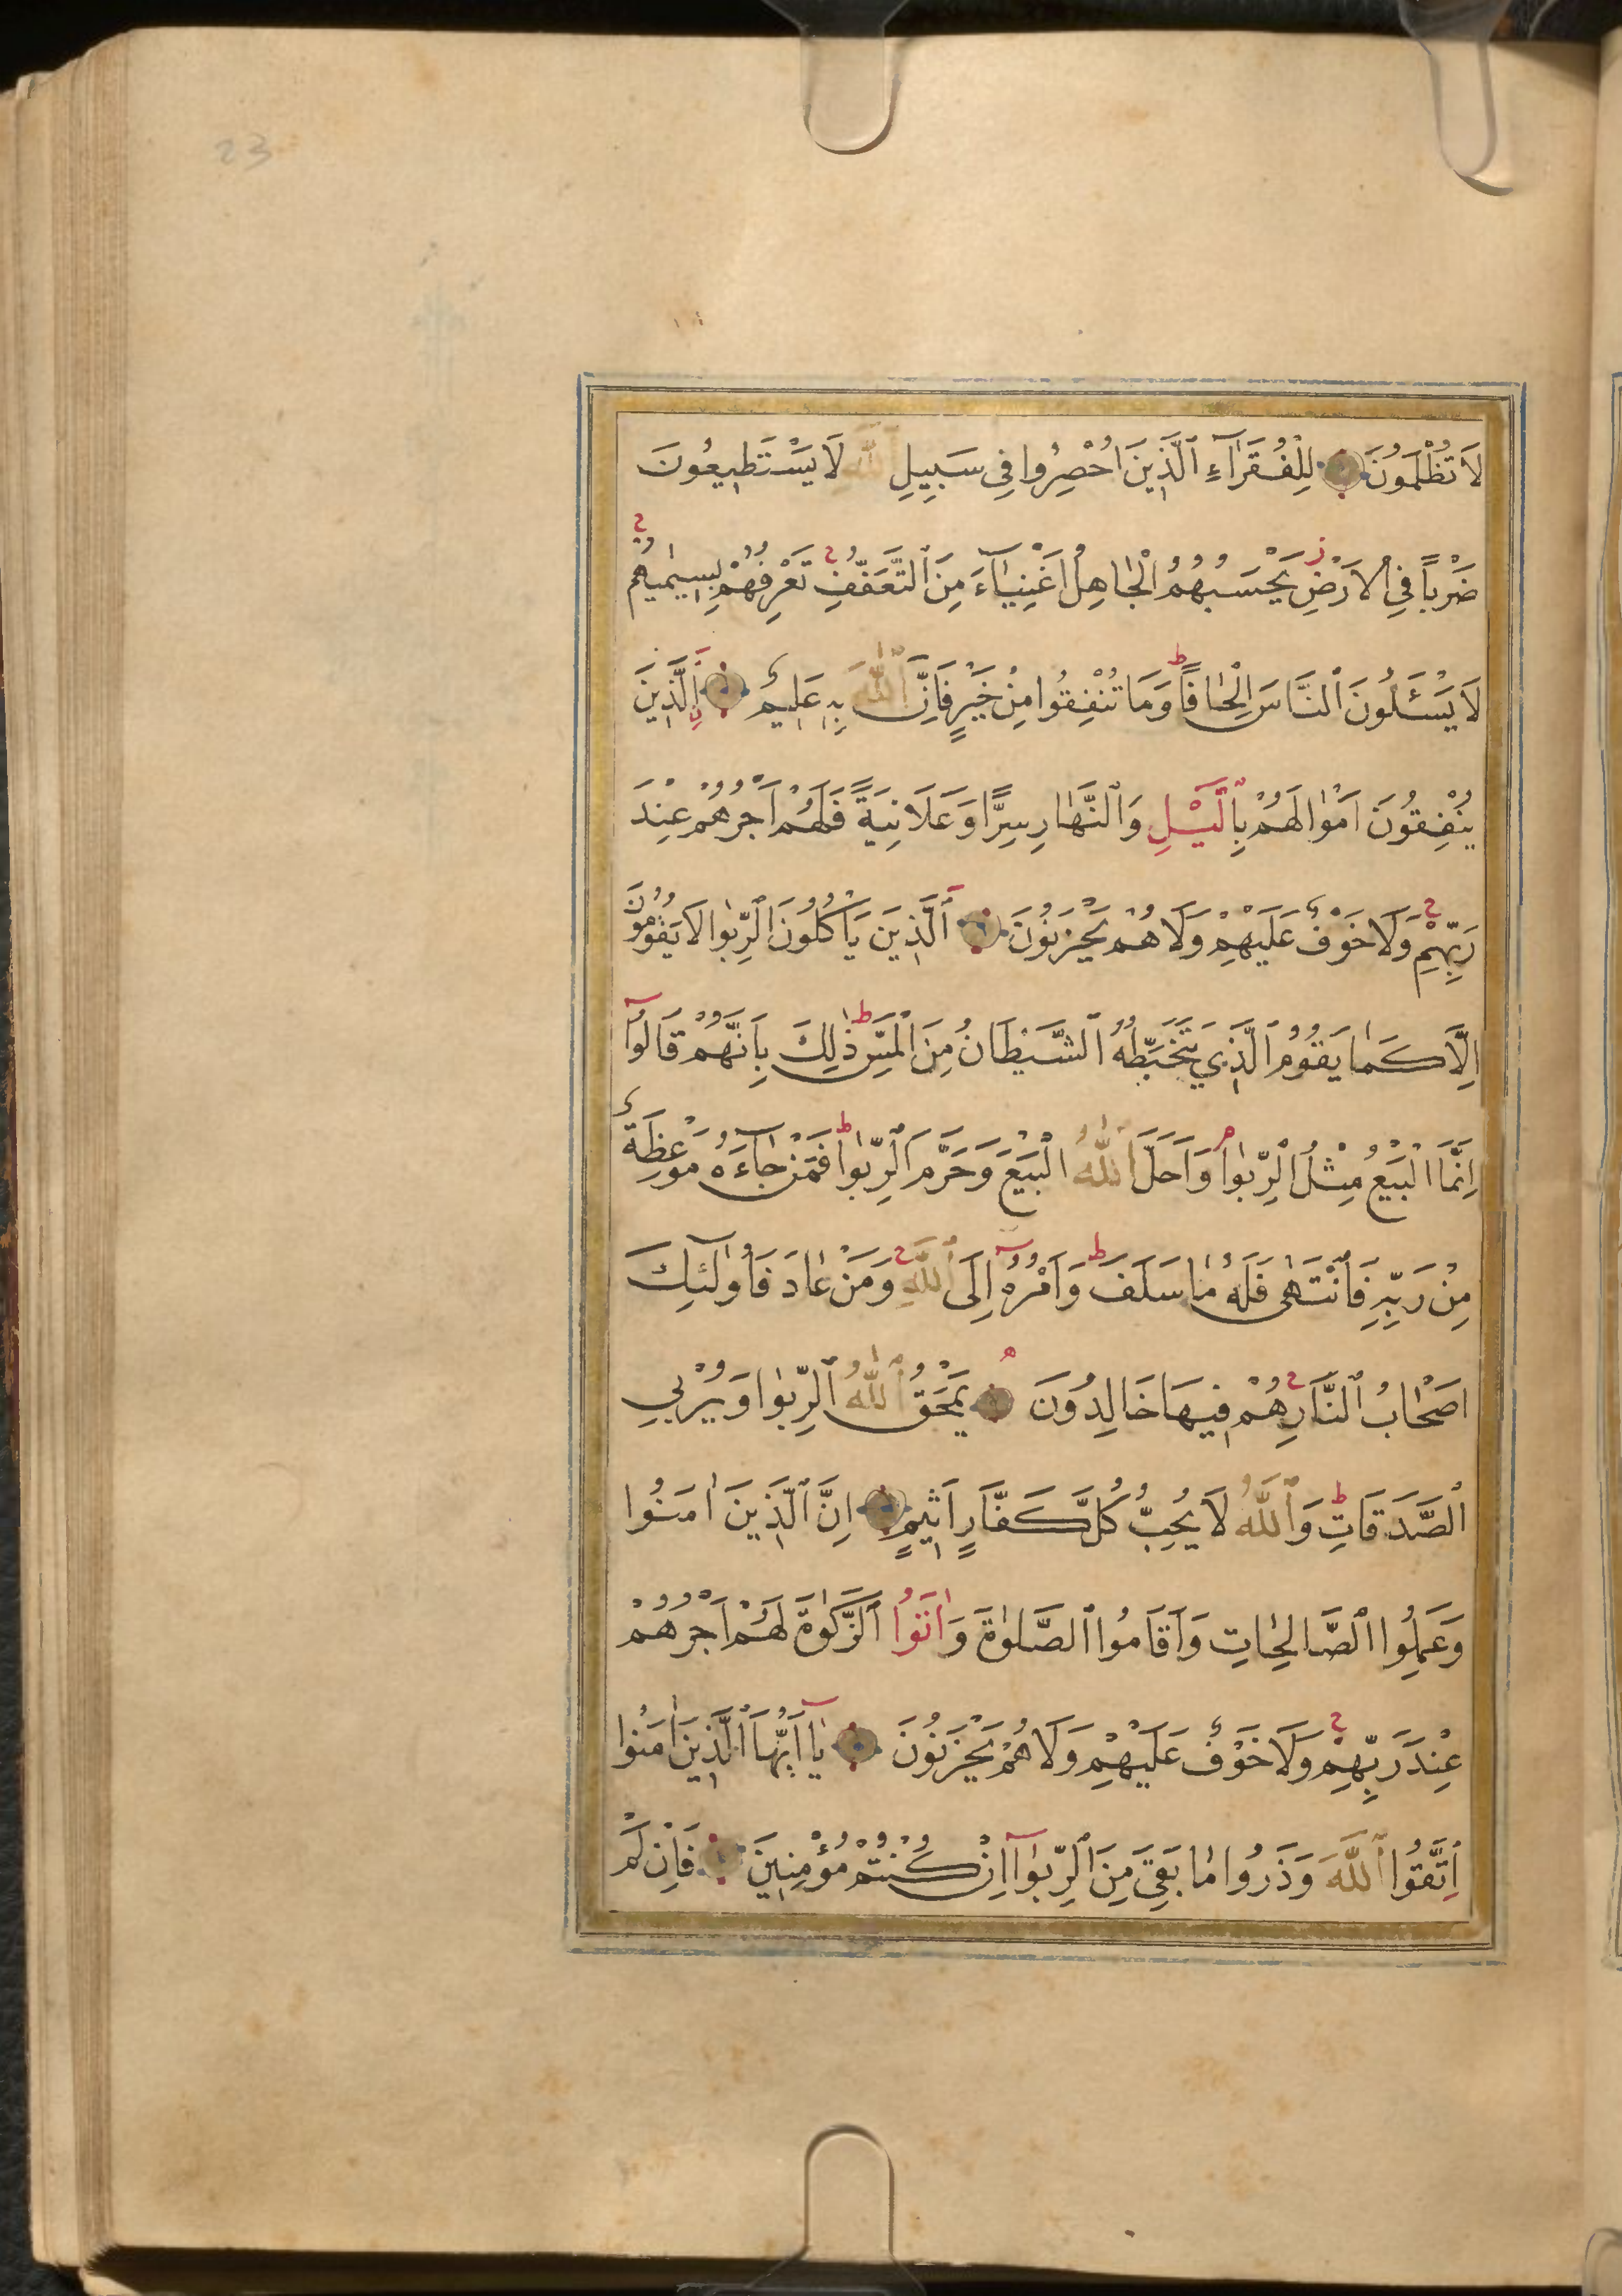 23
لَا تُظْلَمُونَ لِلْفُقَرَآءِ ٱلَّذِينَ اُحْصِرُوا فِى سَبِيلِ ٱللّٰهِ لَا يَسْتَطِيعُونَ
ضَرْباً فِى ٱلاَرْضِ ز يَحْسَبُهُمُ الْجَاهِلُ اَغْنِيَآءَ مِنَ ٱلتَّعَفُّفِ ج تَعْرِفُهُمْ بِسِيمٰيهُمْ ج
لَا يَسْـَٔلُونَ ٱلنَّاسَ اِلْحَافًا ط وَمَا تُنْفِقُوا مِنْ خَيْرٍ فَاِنَّ ٱللّٰهَ بِهِ عَلِيمٌ اَلَّذِينَ
يُنْفِقُونَ اَمْوَالَهُمْ بِٱلَّيْلِ وَٱلنَّهَارِ سِرًّا وَعَلَانِيَةً فَلَهُمْ اَجْرُهُمْ عِنْدَ
رَبِّهِمْ ج وَلَا خَوْفٌ عَلَيْهِمْ وَلَا هُمْ يَحْزَنُونَ اَلَّذِينَ يَاْكُلُونَ ٱلرِّبٰوا لَا يَقُومُونَ
اِلَّا كَمَا يَقُومُ ٱلَّذِي يَتَخَبَّطُهُ ٱلشَّيْطَانُ مِنَ الْمَسِّ ط ذٰلِكَ بِاَنَّهُمْ قَالُوآ
اِنَّمَا الْبَيْعُ مِثْلُ ٱلرِّبٰوا م وَاَحَلَّ ٱللّٰهُ الْبَيْعَ وَحَرَّمَ ٱلرِّبٰوا ط فَمَنْ جَآءَهُ مَوْعِظَةٌ
مِنْ رَبِّهِ فَٱنْتَهٰى فَلَهُ مَا سَلَفَ ط وَاَمْرُهُ اِلَى ٱللّٰهِ ج وَمَنْ عَادَ فَاُولٰٓئِكَ
اَصْحَابُ ٱلنَّارِ ج هُمْ فِيهَا خَالِدُونَ ه يَمْحَقُ ٱللّٰهُ ٱلرِّبٰوا وَيُرْبِي
ٱلصَّدَقَاتِ ط وَٱللّٰهُ لَا يُحِبُّ كُلَّ كَفَّارٍ اَثِيمٍ اِنَّ ٱلَّذِينَ اٰمَنُوا
وَعَمِلُوا ٱلصَّالِحَاتِ وَاَقَامُوا ٱلصَّلٰوةَ وَاٰتَوُا ٱلزَّكٰوةَ لَهُمْ اَجْرُهُمْ
عِنْدَ رَبِّهِمْ ج وَلَا خَوْفٌ عَلَيْهِمْ وَلَا هُمْ يَحْزَنُونَ يَآ اَيُّهَا ٱلَّذِينَ اٰمَنُوا
اِتَّقُوا ٱللّٰهَ وَذَرُوا مَا بَقِيَ مِنَ ٱلرِّبٰوآ اِنْ كُنْتُمْ مُؤْمِنِينَ فَاِنْ لَمْ